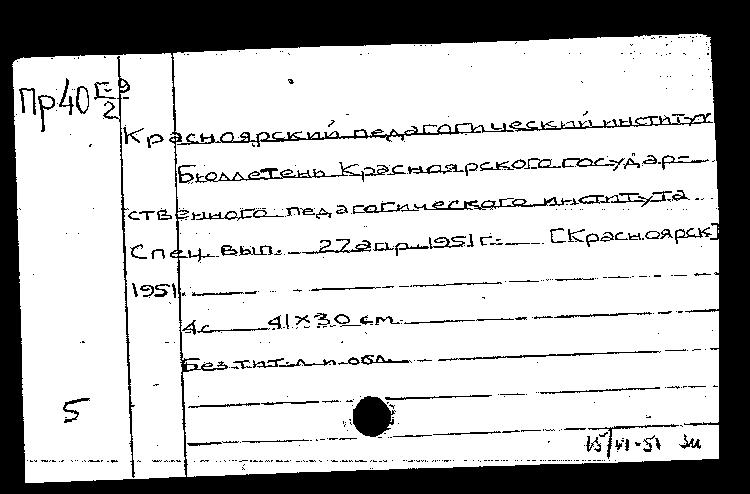 Пр40 Г-9/2
Красноярский педагогический институт
Бюллетень Красноярского государ-
ственного педагогического института
Спец. вып. 27 апр 1951 г. [Красноярск]
1951.
4с 41×30 см.
Без тит. л и обл.
5
15/VI-51